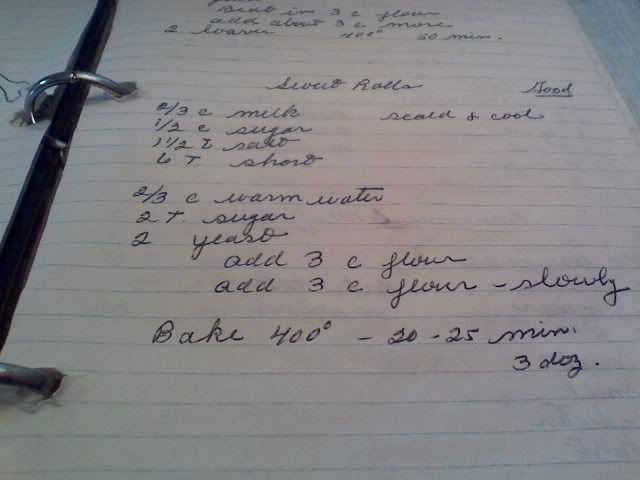 Beat in 3 c flour
add about 3 c more
2 loaves 400° 50 min.
Sweet Rolls Good
2/3 c milk scald & cool
1/2 c sugar
1 1/2 t salt
6 T short
2/3 c warm water
2 t. sugar
2 yeast
add 3 c flour
add 3 c flour - slowly
Bake 400° - 20 - 25 min.
3 doz.